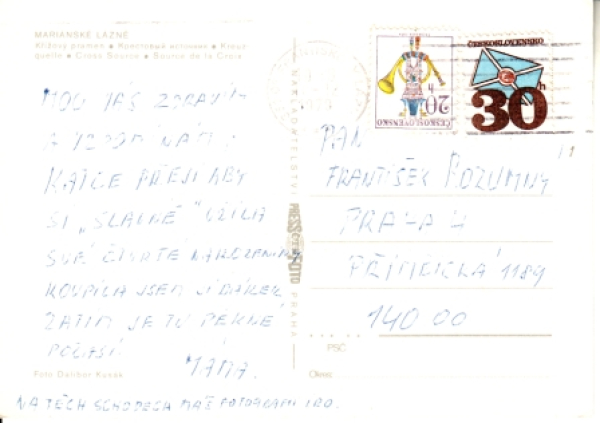 MARIÁNSKÉ LÁZNĚ
Křížový pramen • Крестовый источник • Kreuz
quelle • Cross Source • Source de la Croix
MOC VÁS ZDRAVÍM
KATCE PŘEJI ABY
SI „SLAVNĚ" UŽILA
SVÉ ČTVRTÉ NAROZENINY
KOUPILA JSEM JÍ DÁREK
ZATÍM JE TU PĚKNÉ
POČASÍ.
MÁMA.
Foto Dalibor Kusák
NA TĚCH SCHODECH MÁŠ FOTOGRAFII
NAKLADATELSTVÍ PRESSFOTO PRAHA
20 h
ČESKOSLOVENSKO
ČESKOSLOVENSKO
30 h
PAN
FRANTIŠEK ROZUMNÝ
PRAHA 4
PŘÍMĚTICKÁ 1189
140 00
PSČ
Okres